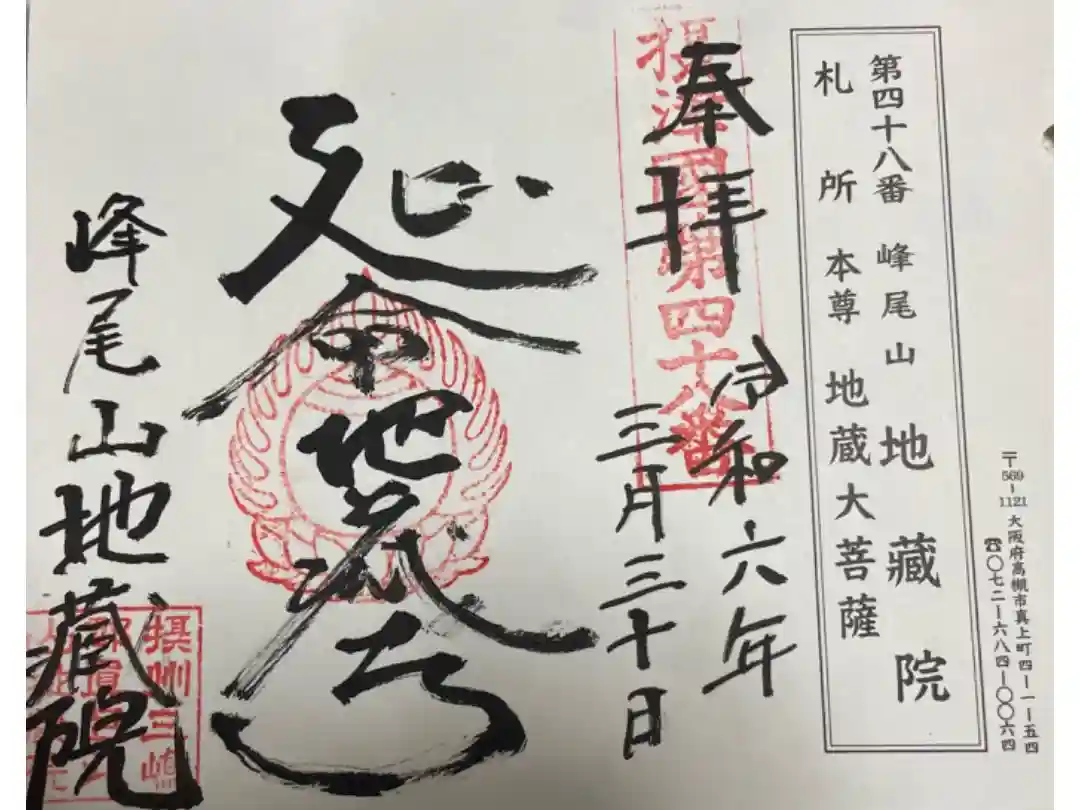 第四十八番 峰尾山 地藏院
札所 本尊 地蔵大菩薩
〒569-1121 大阪府高槻市真上町四ー一ー五四
☎〇七二ー六八四ー〇〇六四
奉拝
摂津國第四十八番
令和六年
三月三十日
延命地蔵尊
峰尾山地蔵院
摂州三嶋